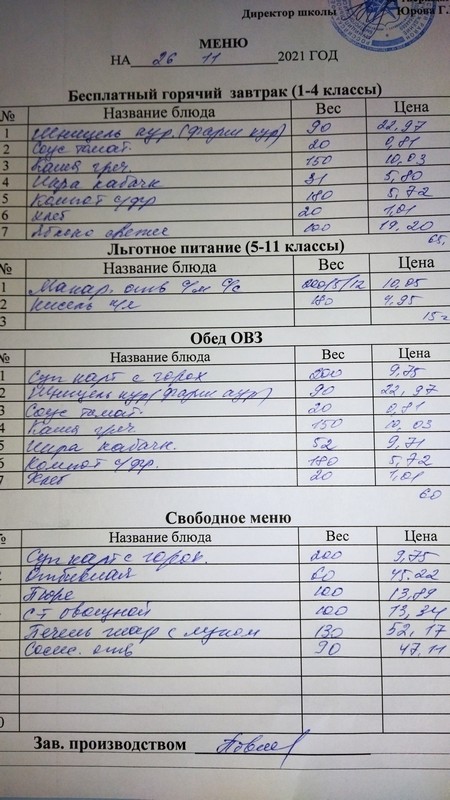 Директор школы
Юрова Г.
МЕНЮ
НА 26 11 2021 ГОД
Бесплатный горячий завтрак (1-4 классы)
№ Название блюда Вес Цена
1 Шницель кур. (фарш кур) 90 22,97
2 Соус томат. 20 0,81
3 Каша греч. 150 10,03
4 Икра кабачк 31 5,80
5 Компот с/фр 180 5,72
6 Хлеб 20 1,01
7 Яблоко свежее 100 19,20
65,
Льготное питание (5-11 классы)
№ Название блюда Вес Цена
1 Макар. отв с/м с/с 200/5/12 10,05
2 Кисель п/я 180 4,95
3 15=
Обед ОВЗ
№ Название блюда Вес Цена
1 Суп карт с горох 200 9,75
2 Шницель кур (фарш кур) 90 22,97
3 Соус томат. 20 0,81
4 Каша греч 150 10,03
5 Икра кабачк. 52 9,71
6 Компот с/фр. 180 5,72
7 Хлеб 20 1,01
60
Свободное меню
№ Название блюда Вес Цена
Суп карт с горох. 200 9,75
Отбивная 60 45,22
Пюре 100 13,89
СТ овощной 100 13,34
Печень жар с луком 130 52,17
Сосис. отв 90 47,11
0
Зав. производством